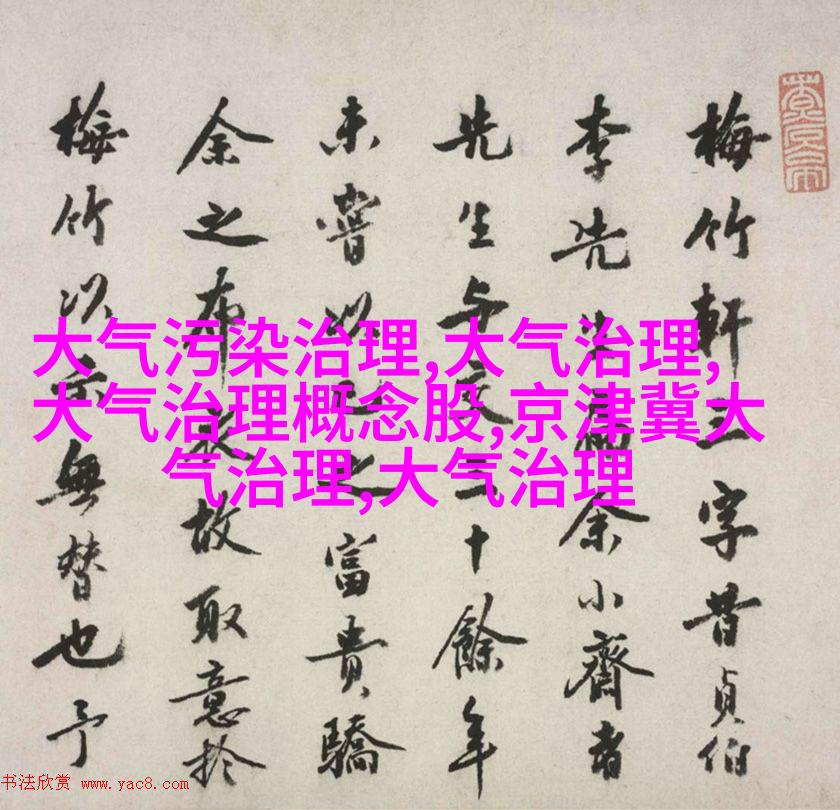 梅竹軒三字昔貞伯
李先生余小齋者
先生与十餘年
未嘗以之富貴驕
余之布衣故取意於
梅竹以示無替也予
大气污染治理,大气治理,
大气治理概念股,京津冀大
气治理,大气治理
书法欣赏 www.yac8.com